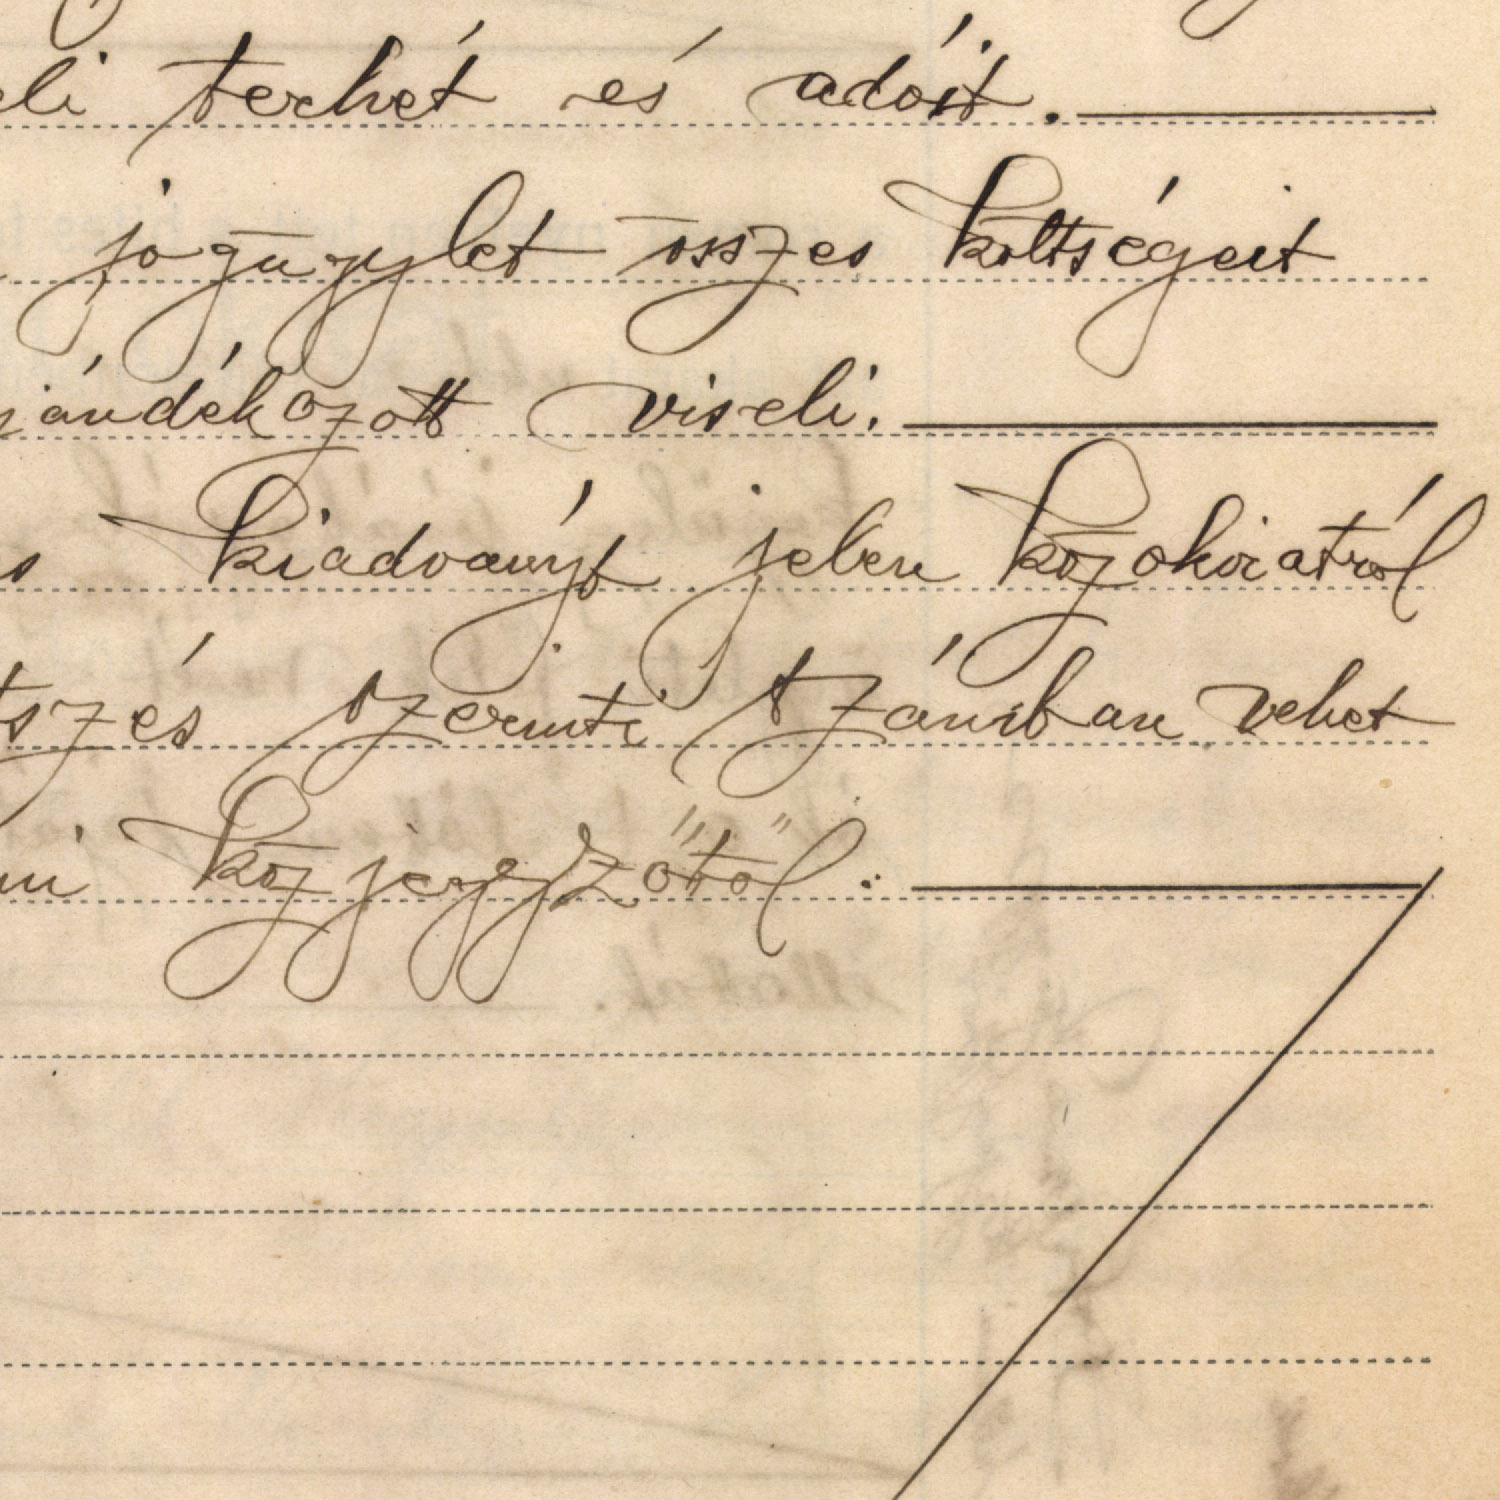 eli terhét és adóit.
jogügylet összes költségeit
jándékozott viseli.
s kiadványt jelen közokiratról
tszés szerinti számban vehet
ni közjegyzőtől.